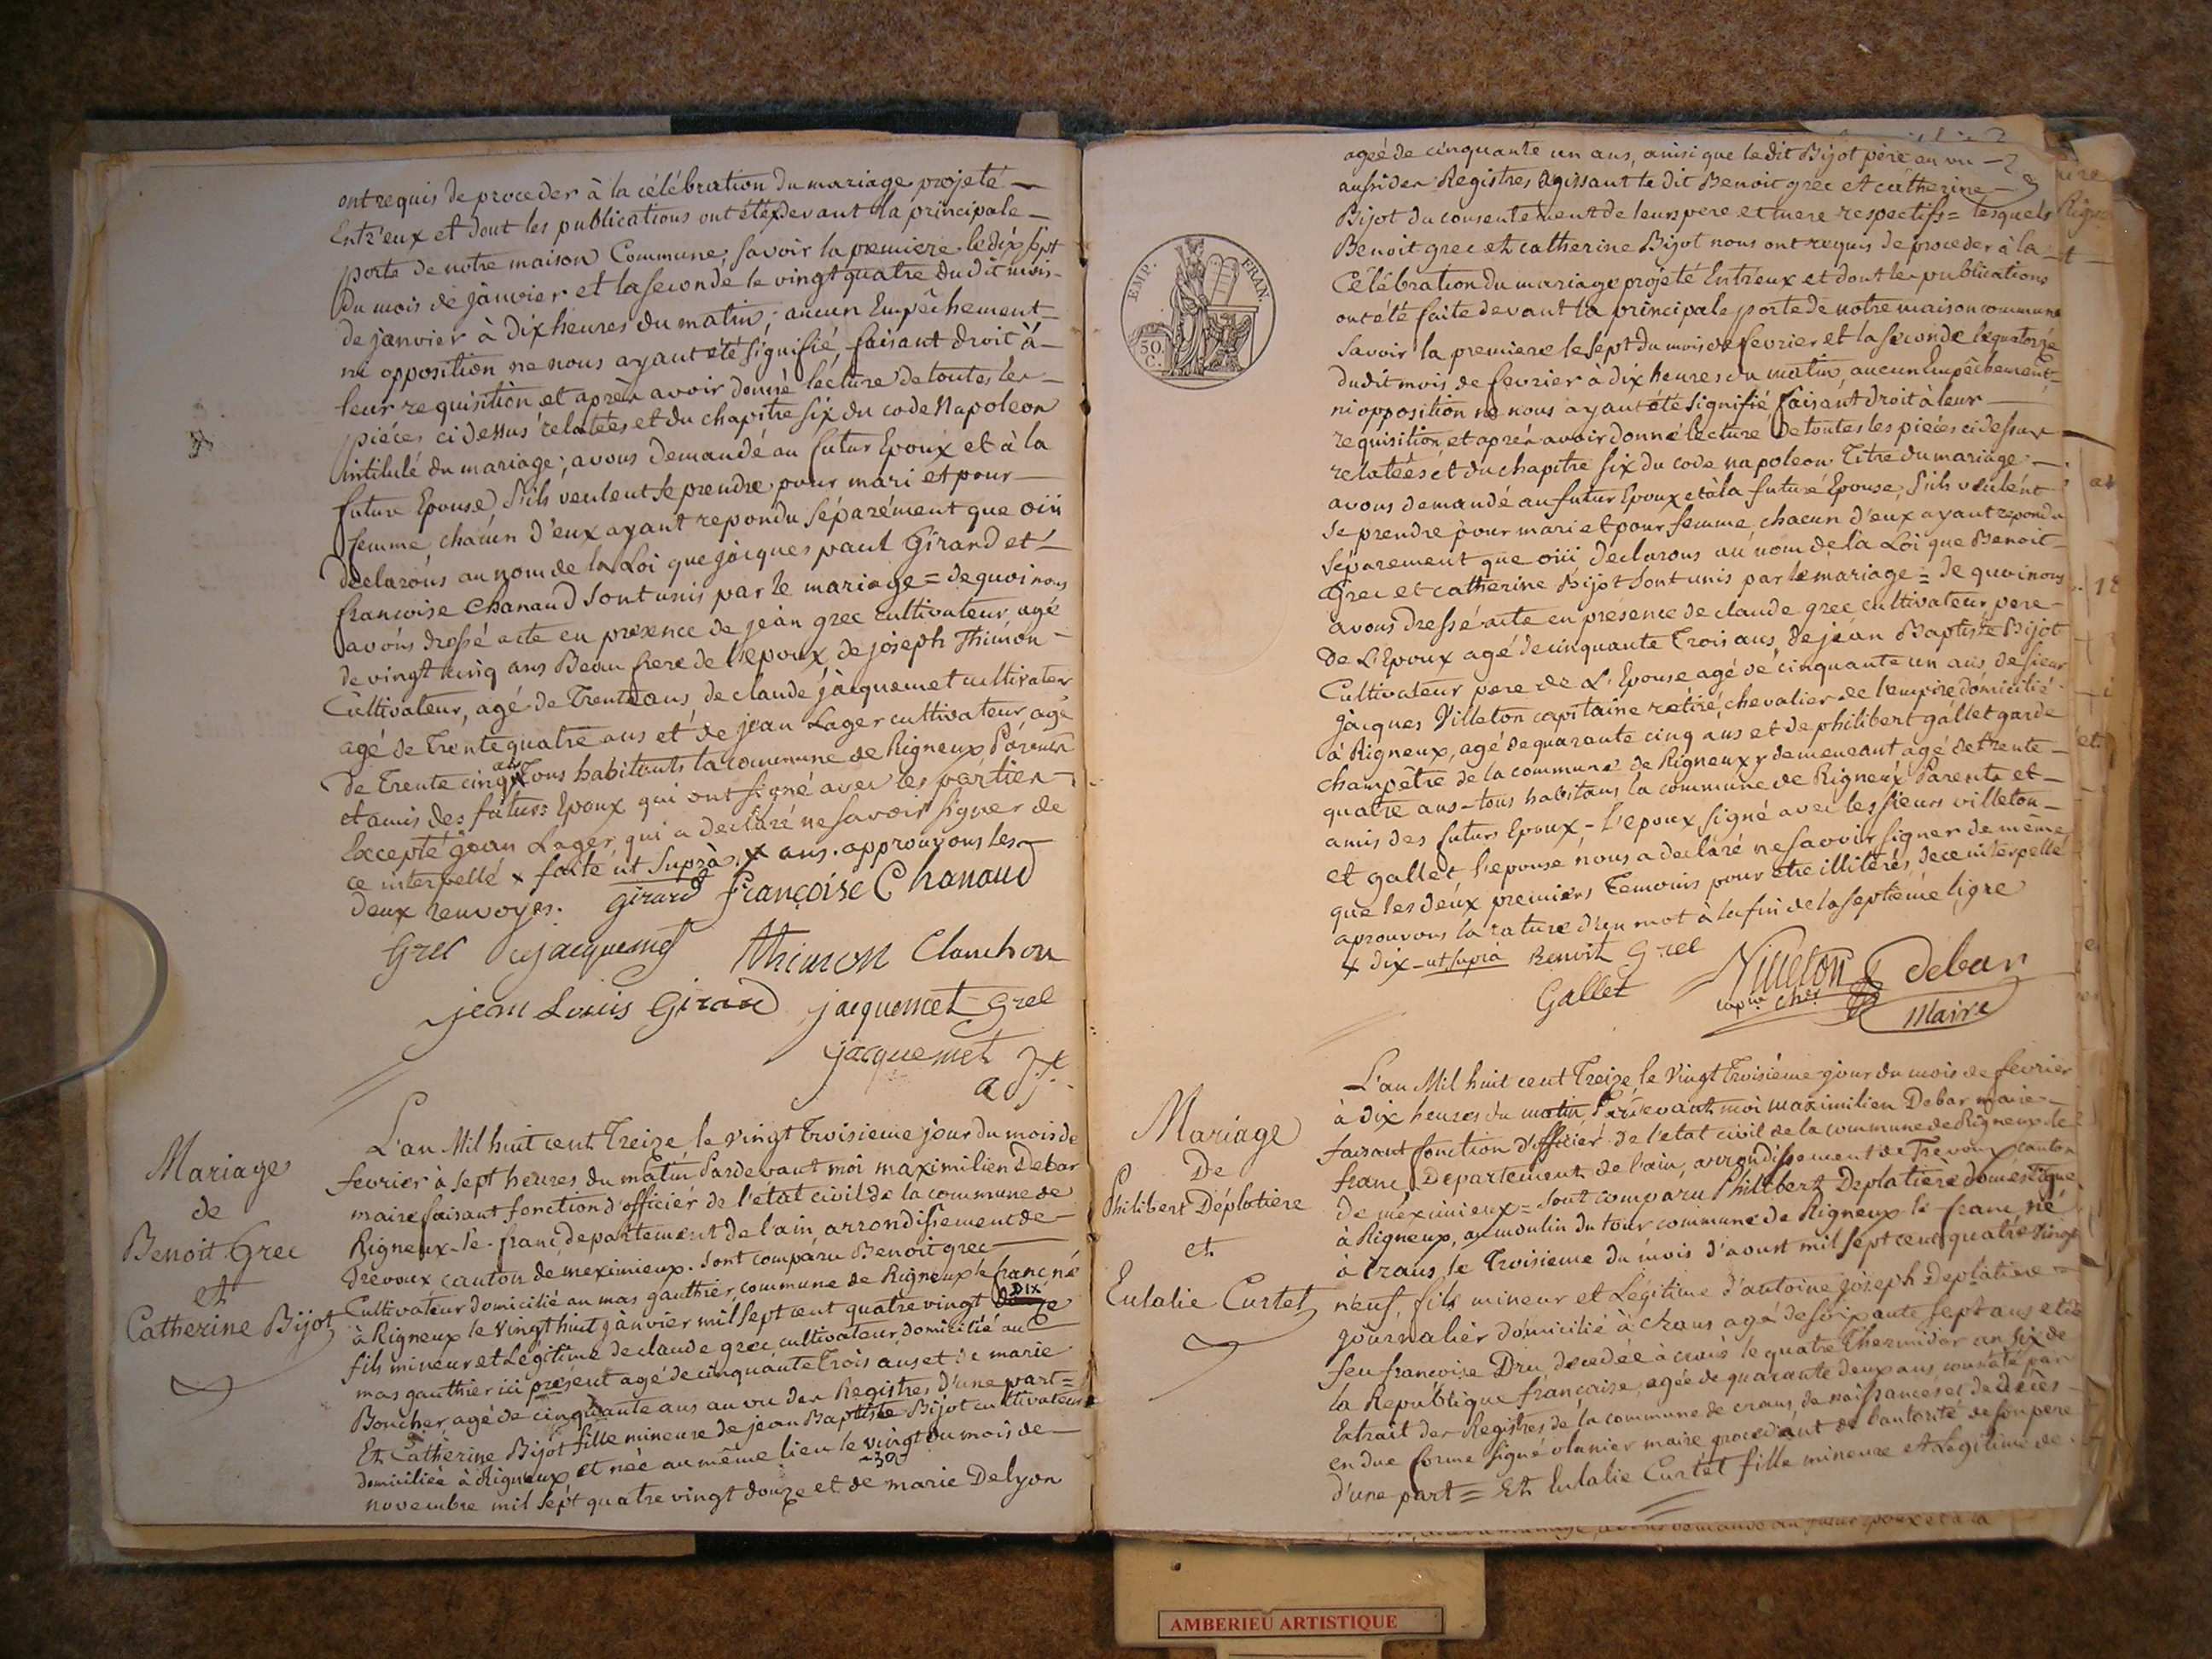 ont requis de proceder à la célébration du mariage projeté —
Entr'eux et dont les publications ont été x devant la principale —
porte de notre maison Commune, savoir la premiere le dix sept
du mois de janvier et la seconde le vingt quatre du dit mois -
de janvier à dix heures du matin; aucun Empêchement =
ni opposition ne nous ayant été signifié, faisant droit à -
leur requisition et après avoir donné lecture de toutes les -
piéces ci dessus relatées et du chapitre six du code Napoleon
intitulé du mariage; avons demandé au futur Epoux et à la
future Epouse, s'ils veulent se prendre pour mari et pour —
femme, chacun d'eux ayant repondu séparément que oui
declarons au nom de la Loi que jacques paul Girard et —
francoise Chanaud sont unis par le mariage = de quoi nous
avons drossé acte en présence de jean grec cultivateur agé
de vingt cinq ans Beau frere de l'epoux, de joseph Thimon -
Cultivateur, agé de Trente ans, de claude jacquemet cultivateur
agé de Trente quatre ans et de jean Lager cultivateur, agé
de Trente cinq x Tous habitants la commune de Rigneux Parents
et amis des futurs Epoux qui ont signé avec les parties -
Excepté jean Lager, qui a declaré ne savoir signer de
ce interpellé x faite ut Suprà. x ans. approuvons les
deux renvoyes. Girard françoise Chanaud
Grec jacquemet Thimon Clanchon
jean Louis Girard jacquemet Grel
jacquemet
adj.
Mariage
de
Benoit Grec
et
Catherine Bijot
L'an Mil huit cent Treize le vingt Troisieme jour du mois de
fevrier à sept heures du matin Pardevant moi maximilien Debar
maire faisant fonction d'officier de l'etat civil de la commune de
Rigneux-le-franc, departement de l'ain, arrondissement de —
Trevoux canton de meximieux. Sont comparu Benoit grec —
Cultivateur domicilié au mas gauthier, commune de Rigneux le franc, né
à Rigneux le vingt huit janvier mil sept cent quatre vingt DIX
fils mineur et Légitime de claude grec cultivateur domicilié au
mas gauthier ici present agé de cinquante trois ans et de marie
Boucher, agé de cinquante ans au vu des Registres d'une part =
Et Catherine Bijot fille mineure de jean Baptiste Bijot cultivateur
domiciliée à Rigneux et née au même lieu le vingt du mois de —
novembre mil sept quatre vingt douze et de marie Delyon
EMP. FRAN.
50 C.
ageé de cinquante un ans, ainsi que le dit Bijot père au vu —
aussi des Registres agissant le dit Benoit grec et catherine —
Bijot du consentement de leurs pere et mere respectifs = lesquels
Benoit grec et catherine Bijot nous ont requis de proceder à la
Célébration du mariage projeté Entr'eux et dont les publications
ont été faite devant la principale porte de notre maison commune
savoir la premiere le sept du mois de fevrier et la seconde le quatorze
du dit mois de fevrier à dix heures du matin, aucun Empêchement =
ni opposition ne nous ayant été signifié faisant droit à leur —
requisition, et après avoir donné lecture de toutes les piéces ci dessus
relatées et du chapitre six du code napoleon Titre du mariage —
avons demandé au futur Epoux et à la future Epouse, s'ils veulent
se prendre pour mari et pour femme, chacun d'eux ayant repondu
séparement que oui declarons au nom de la Loi que Benoit —
Grec et catherine Bijot sont unis par le mariage = de quoi nous
avons dressé acte en présence de claude grec cultivateur, pere -
De L'Epoux agé de cinquante Trois ans, de jean Baptiste Bijot
Cultivateur pere de L'Epouse agé de cinquante un ans de sieur
jacques Villeton capitaine retiré, chevalier de l'empire domicilié
à Rigneux, agé de quarante cinq ans et de philibert gallet garde
champêtre de la commune de Rigneux y demeurant agé de trente —
quatre ans - tous habitans la commune de Rigneux Parents et —
amis des futurs Epoux. - L'epoux signé avec les sieurs villeton —
et gallet l'epouse nous a declaré ne savoir signer de même
que les deux premiers Temoins pour être illitérés, de ce interpellé
aprouvons la rature d'un mot à la fin de la septieme ligne
x dix - ut supra Benoit Grel
Gallet Villeton capne cher debar
Maire
Mariage
De
Philibert Déplatiere
et
Eulalie Curtet
L'an Mil huit cent Treize le Vingt Troisième jour du mois de fevrier
à dix heures du matin Pardevant moi maximilien Debar maire —
faisant fonction d'officier de l'etat civil de la commune de Rigneux le
franc, Departement de l'ain, arrondissement de Trevoux, canton
de meximieux = Sont comparu Philibert Deplatiere domestique
à Rigneux, au moulin du tour commune de Rigneux le franc, né
à Crans le Troisieme du mois d'aoust mil sept cent quatre vingt
neuf, fils mineur et Légitime d'antoine joseph Deplatiere —
journalier domicilié à Crans agé de soixante sept ans et de
feu francoise Dru, decedée à crans le quatre Thermidor an six de
la République française, agée de quarante deux ans constaté par
Extrait des Registres de la commune de crans, de naissances et de décès
en due forme signé olanier maire procedant de l'autorité de son pere
d'une part = Et Eulalie Curtet fille mineure et Légitime de
AMBERIEU ARTISTIQUE